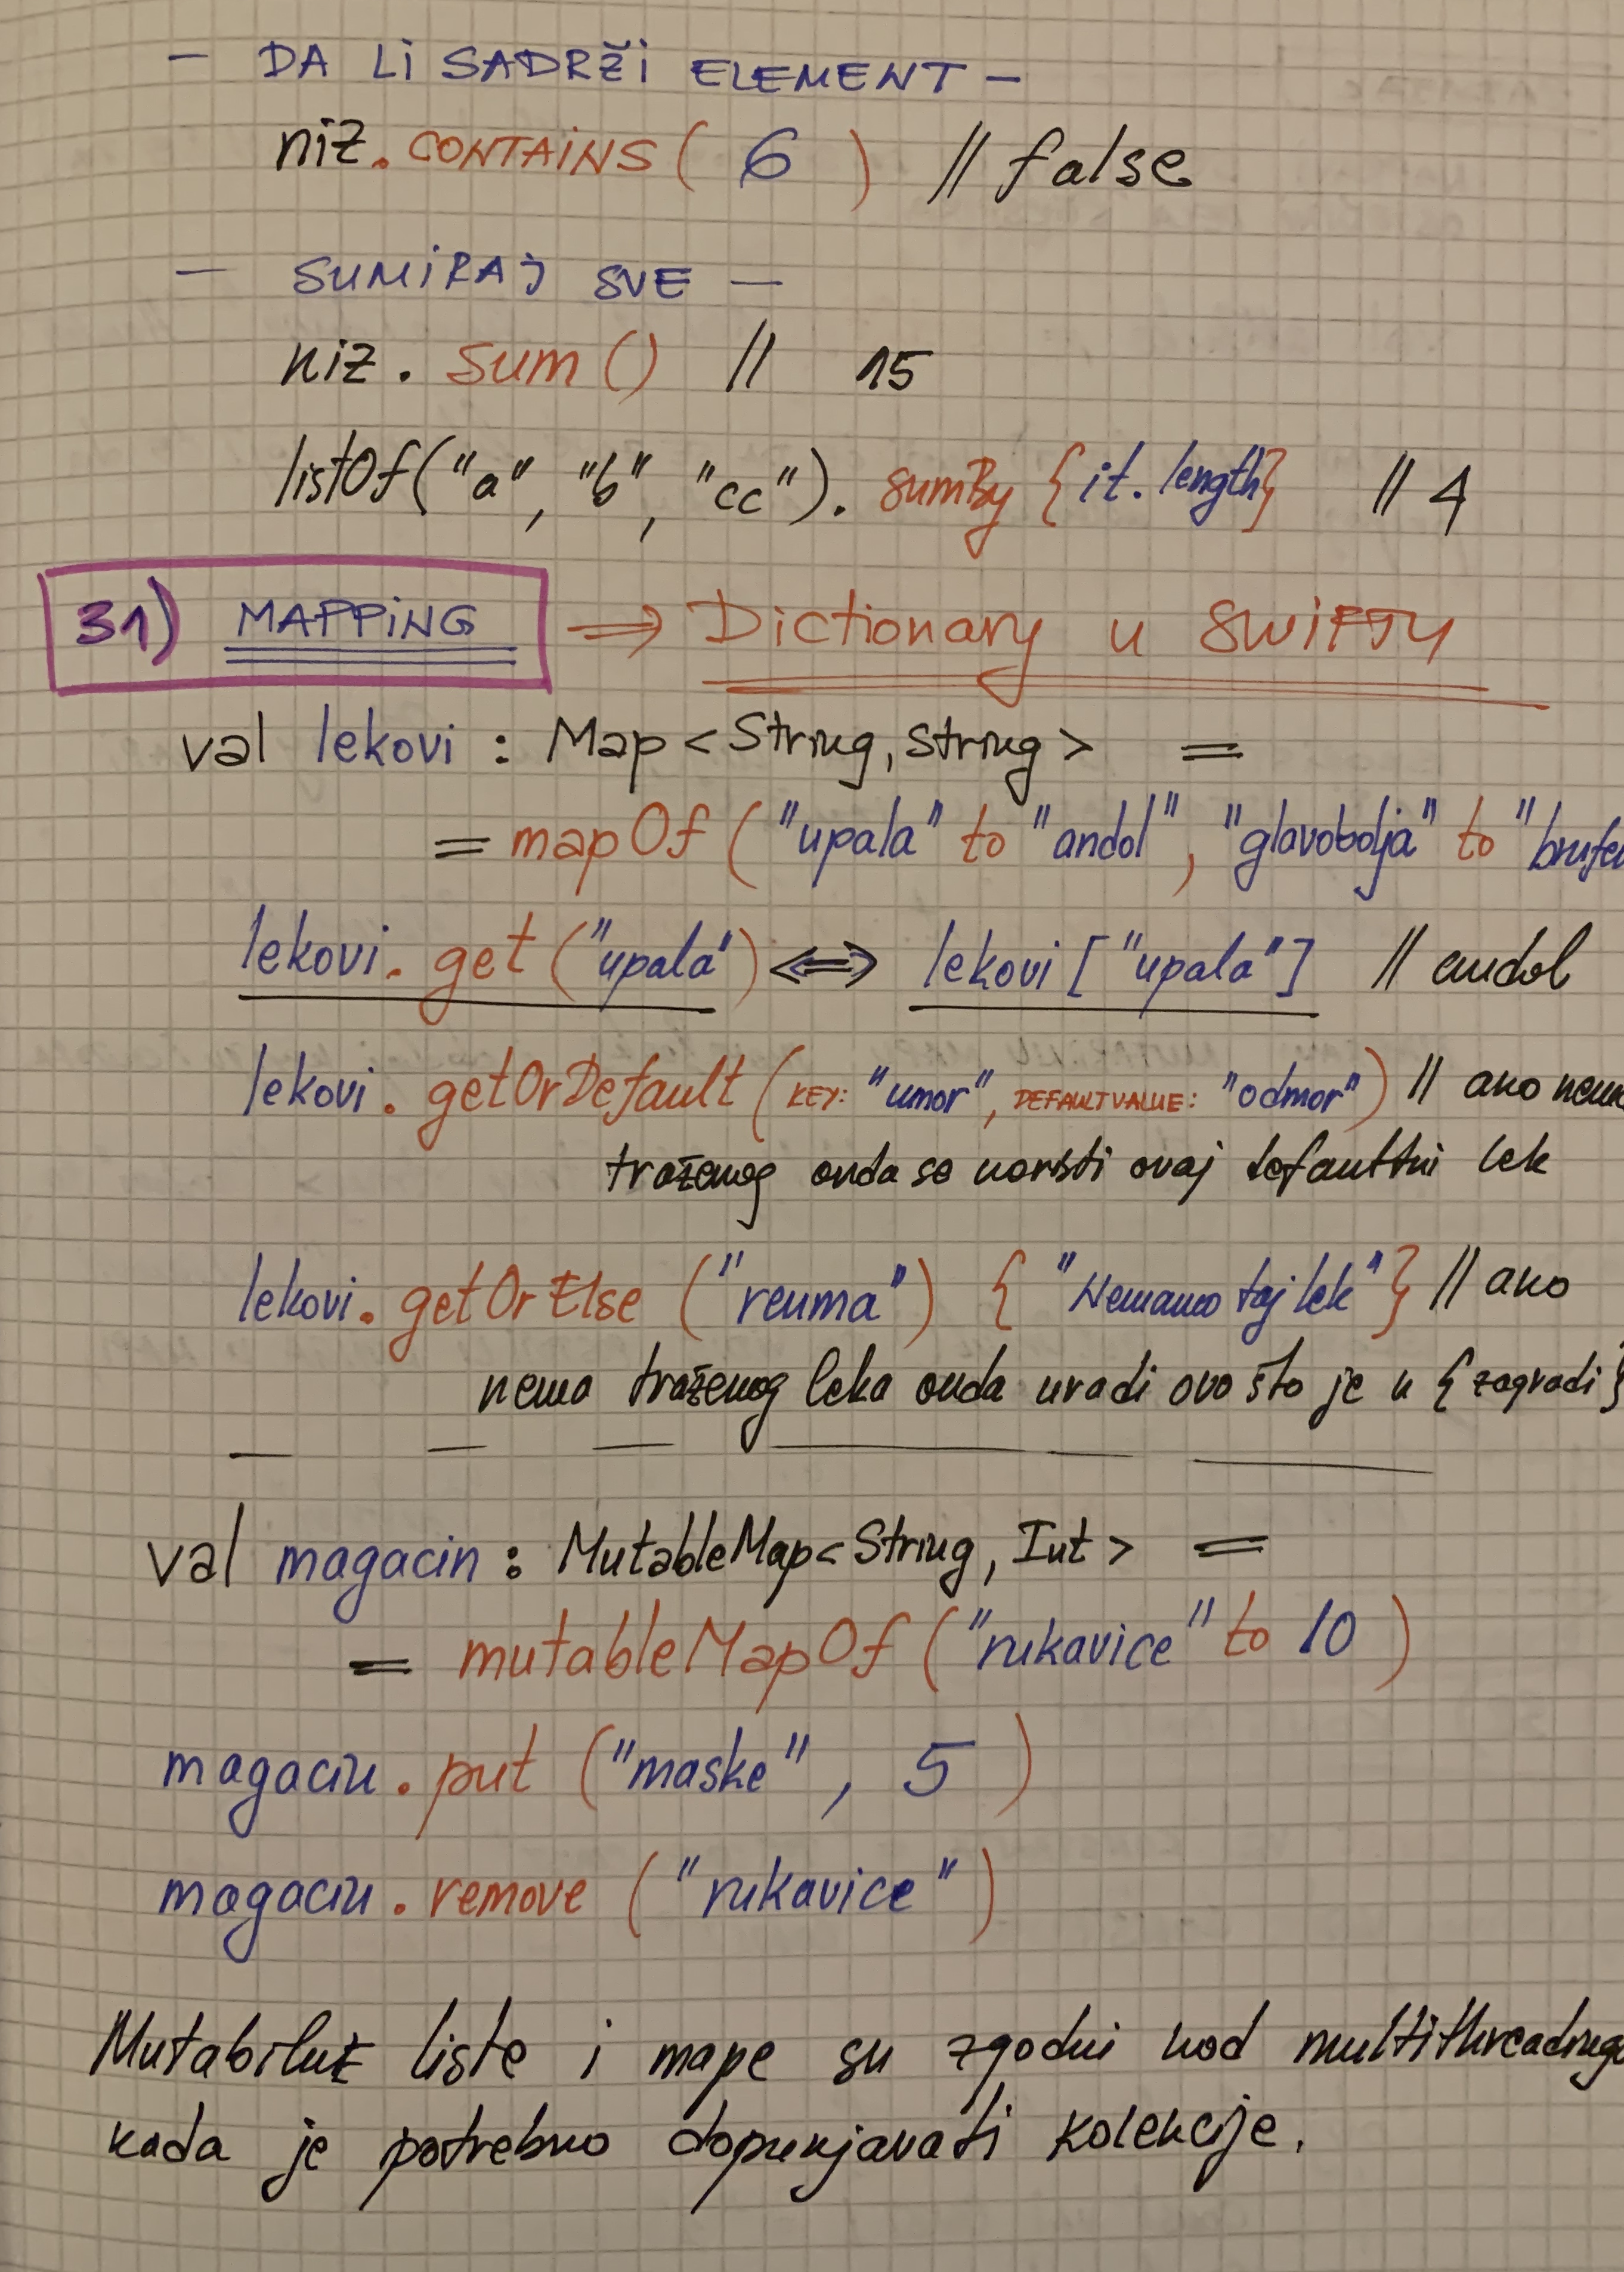 - DA LI SADRŽI ELEMENT -
niz.CONTAINS( 6 ) // false
- SUMIRAJ SVE -
niz. sum() // 15
listOf("a", "b", "cc"). sumBy {it.length} // 4
31) MAPPING => Dictionary u SWIFTU
val lekovi : Map<String, String> =
= mapOf ("upala" to "andol", "glavobolja" to "brufen
lekovi.get("upala") <=> lekovi ["upala"] // andol
lekovi.getOrDefault (KEY: "umor", DEFAULTVALUE: "odmor") // ako nema
traženog onda se koristi ovaj defaultni lek
lekovi.getOrElse ("reuma") { "Nemamo taj lek"} // ako
nema traženog leka onda uradi ovo što je u {zagradi}
val magacin : MutableMap<String, Int> =
= mutableMapOf ("rukavice" to 10 )
magacin.put ("maske", 5 )
magacin.remove ("rukavice")
Mutabilne liste i mape su zgodni kod
kada je potrebno dopunjavati kolekcije.